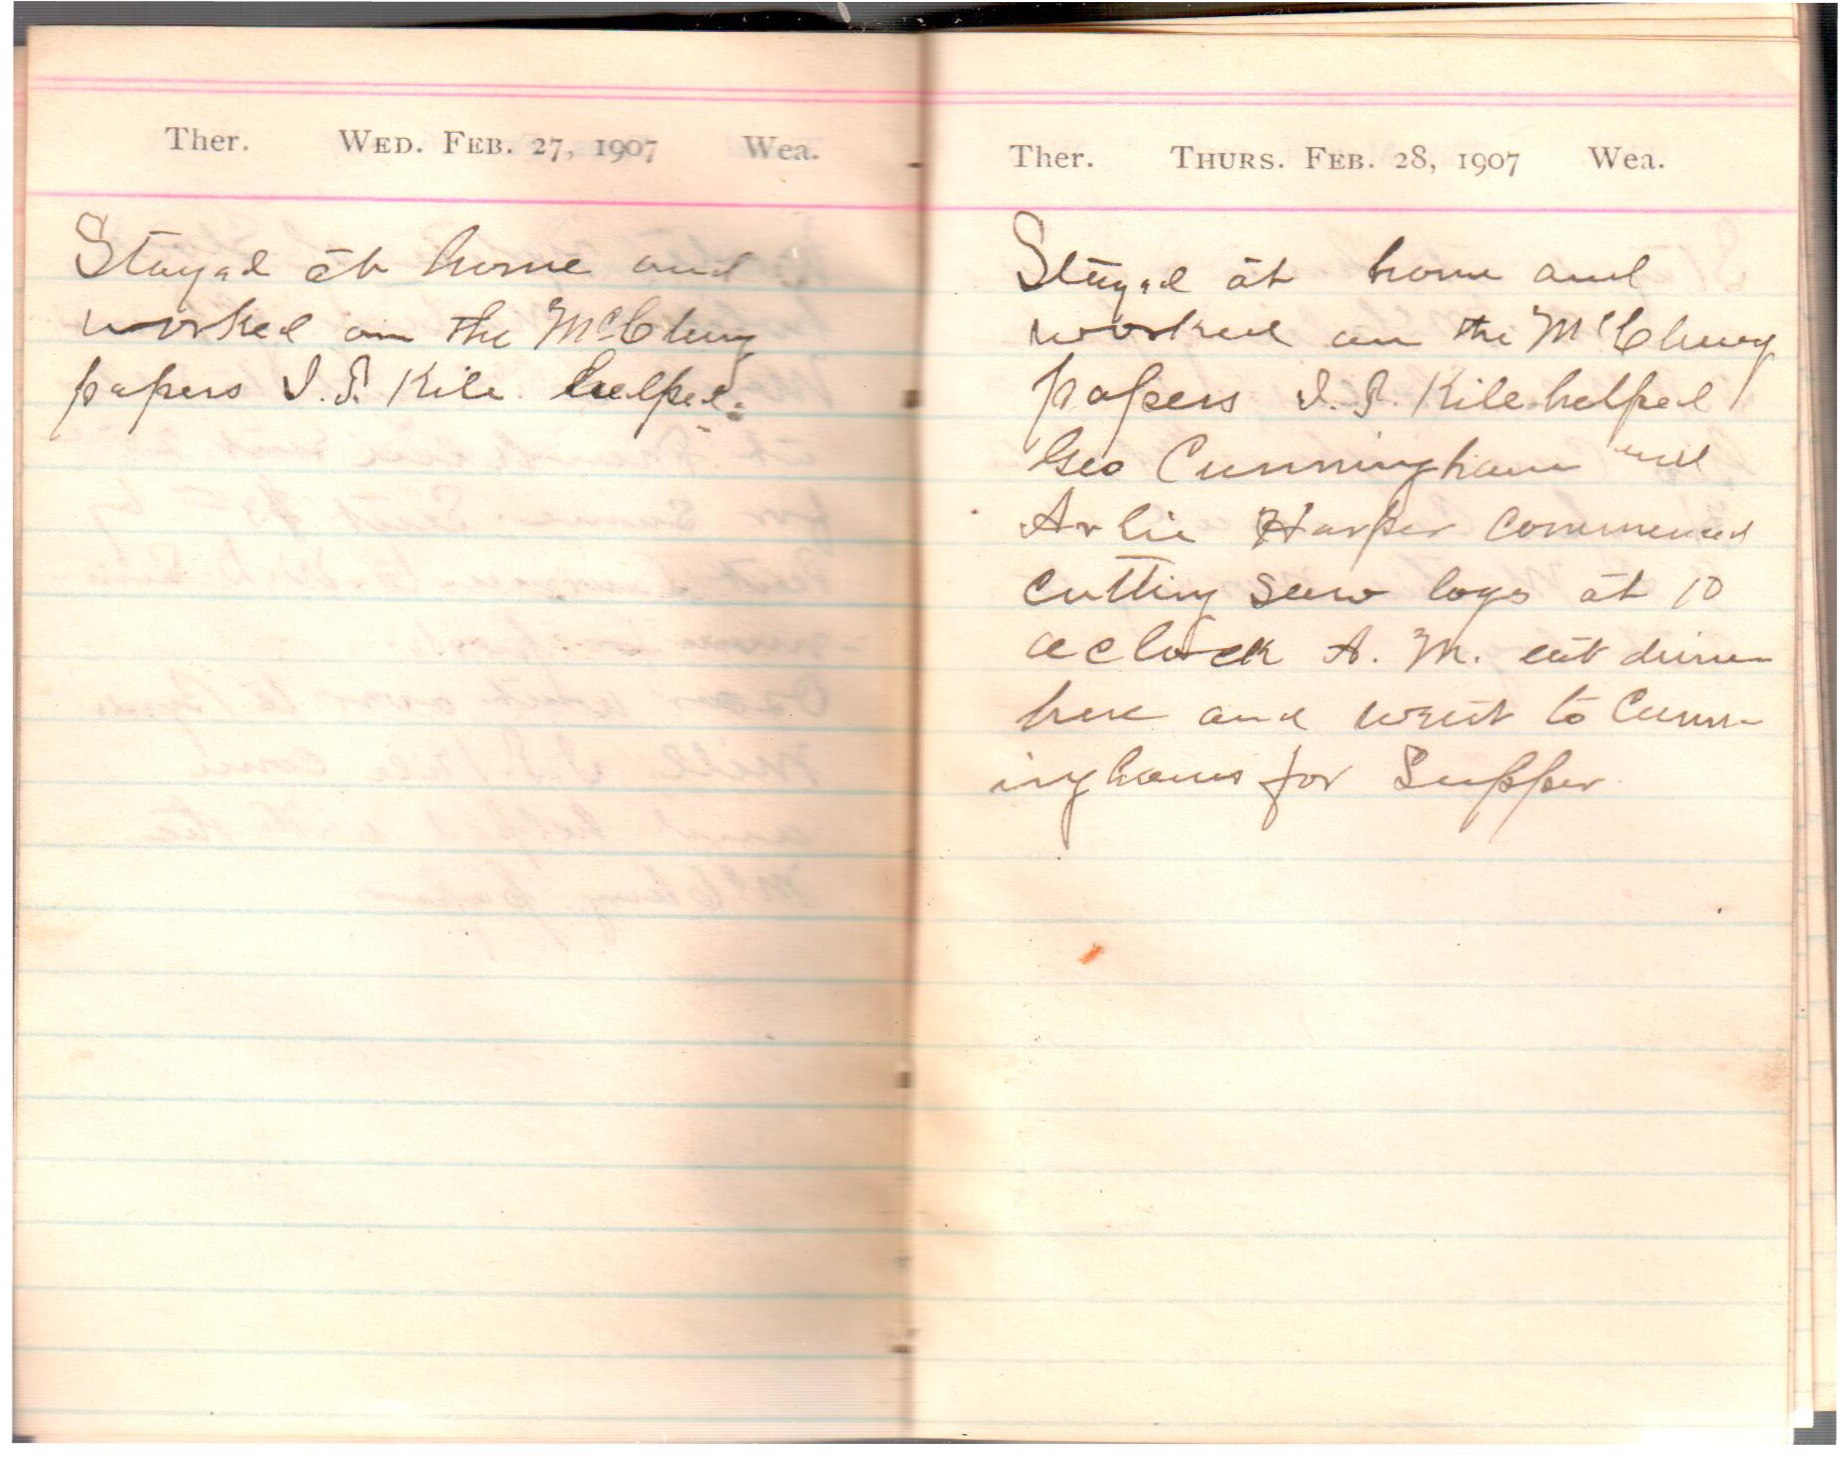 Ther. WED. FEB. 27, 1907 Wea.
Stayed at home and
worked on the McClung
papers I. S. Kile helped.
Ther. THURS. FEB. 28, 1907 Wea.
Stayed at home and
worked on the McClung
papers I. S. Kile helped
Geo Cunningham and
Arlie Harper commenced
cutting saw logs at 10
oclock A. M. eat dinner
here and went to Cunn-
inghams for Supper